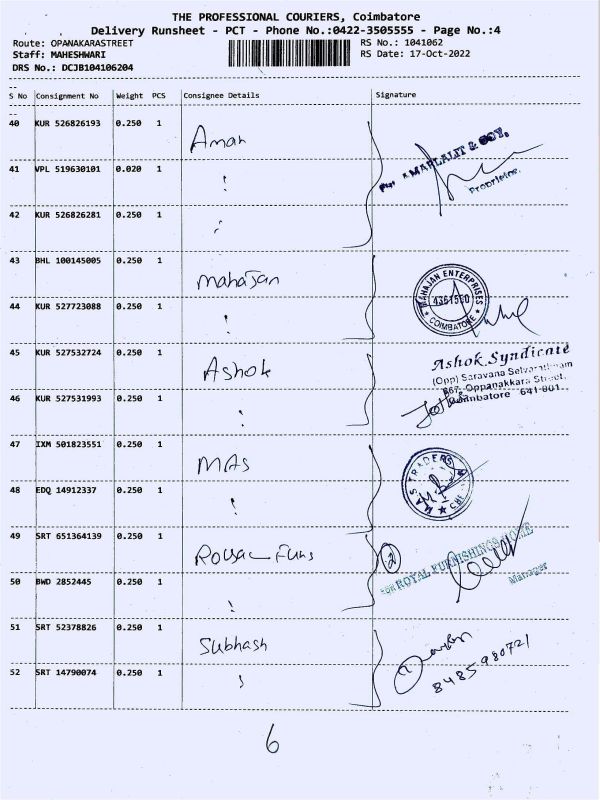 THE PROFESSIONAL COURIERS, Coimbatore
Delivery Runsheet - PCT - Phone No.:0422-3505555 - Page No.:4
Route: OPANAKARASTREET RS No.: 1041062
Staff: MAHESHWARI RS Date: 17-Oct-2022
DRS No.: DCJB104106204
--
S No Consignment No Weight PCS Consignee Details Signature
--
40 KUR 526826193 0.250 1 Aman
AMARLALIT & COY.
Proprietor.
41 VPL 519630101 0.020 1
42 KUR 526826281 0.250 1
43 BHL 100145005 0.250 1 Mahajan
MAHAJAN ENTERPRISES
COIMBATORE
44 KUR 527723088 0.250 1
45 KUR 527532724 0.250 1 Ashok
Ashok Syndicate
(Opp) Saravana Selvarathinam
867, Oppanakkara Street,
Coimbatore 641 001
46 KUR 527531993 0.250 1
47 IXM 501823551 0.250 1 MAS
MAS TRADERS CBE
48 EDQ 14912337 0.250 1
49 SRT 651364139 0.250 1 Royal Furns
2
FOR ROYAL FURNISHINGS HOME
Manager
50 BWD 2852445 0.250 1
51 SRT 52378826 0.250 1 Subhash
8485980721
52 SRT 14790074 0.250 1
6